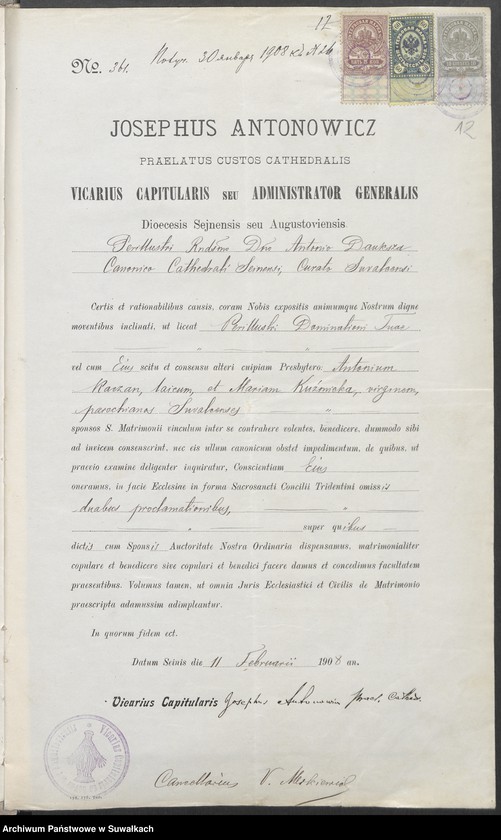 12
No. 361.
30 января 1908 N 26
12
JOSEPHUS ANTONOWICZ
PRAELATUS CUSTOS CATHEDRALIS
VICARIUS CAPITULARIS SEU ADMINISTRATOR GENERALIS
Dioecesis Sejnensis seu Augustoviensis
Perillustri Rndssmo Dno Antonio Dauksza
Canonico Cathedrali Seinensi, Curato Suvalcensi
Certis et rationabilibus causis, coram Nobis expositis animumque Nostrum digne
moventibus inclinati, ut liceat Perillustri Dominationi Tuae
vel cum Eius scitu et consensu alteri cuipiam Presbytero Antonium
Kaczan, laicum, et Mariam Kuźmicka, virginem,
parochianos Suvalcenses
sponsos S. Matrimonii vinculum inter se contrahere volentes, benedicere, dummodo sibi
ad invicem consenserint, nec eis ullum canonicum obstet impedimentum, de quibus, ut
praevio examine deligenter inquiratur, Conscientiam Eius
oneramus, in facie Ecclesiae in forma Sacrosancti Concilii Tridentini omissis
duabus proclamationibus,
super quibus
dictis cum Sponsis Auctoritate Nostra Ordinaria dispensamus, matrimonialiter
copulare et benedicere sive copulari et benedici facere damus et concedimus facultatem
praesentibus. Volumus tamen, ut omnia Juris Ecclesiastici et Civilis de Matrimonio
praescripta adamussim adimpleantur.
In quorum fidem ect.
Datum Seinis die 11 Februarii 1908 an.
Vicarius Capitularis Josephus Antonowicz
Cancellarius V.
Archiwum Państwowe w Suwałkach